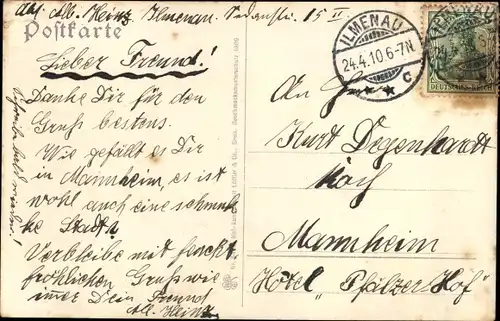 Abs. Alb. Heinz, Ilmenau, Sedanstr. 15 II.
Postkarte
Lieber Freund!
Danke Dir für den
Gruß bestens.
Wie gefällt es Dir
in Mannheim, es ist
wohl auch eine schmuk-
ke Stadt.
Verbleibe mit
fröhlichen Gruß wie
immer Dein Freund
Alb. Heinz
Schreibe bald wieder!
ILMENAU
24.4.10.6-7N
C
ILMENAU
DEUTSCHES REICH
An Herrn
Kurt Degenhardt
Koch
Mannheim
Hotel „Pfälzer Hof"